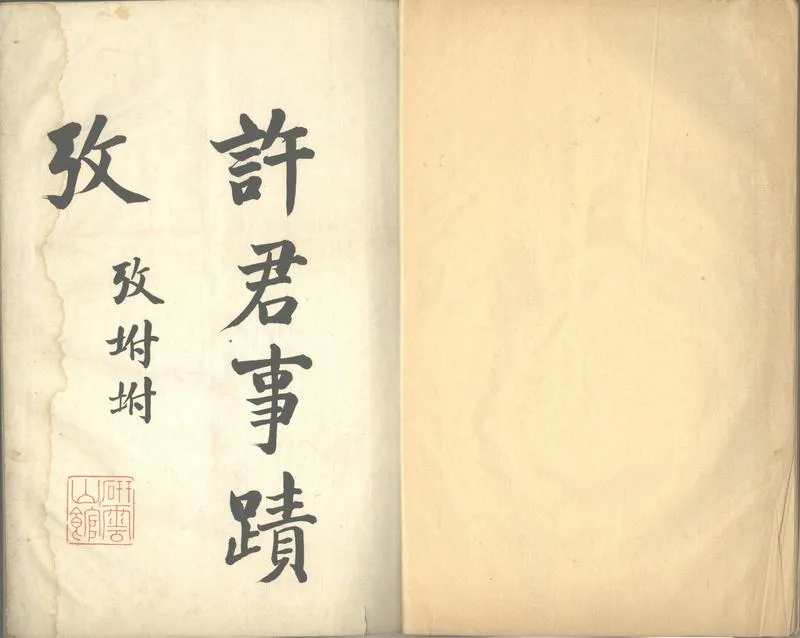 許君事蹟
攷
攷坿坿
研雲
山館